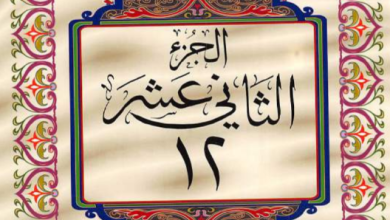 الجزء
الثاني عشر
١٢